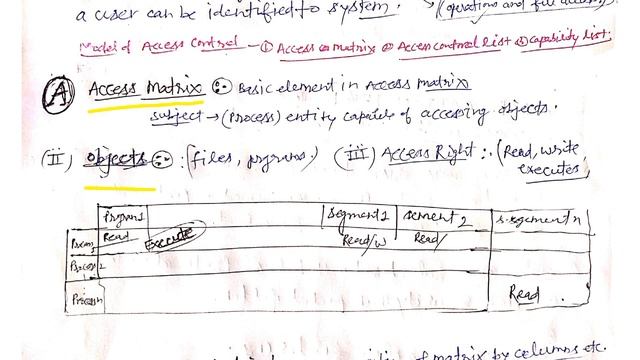 a user can be identified to system. (operations and file access)
Model of Access Control - ① Access matrix ② Access control list ③ capability list.
(A) Access Matrix :- Basic element in Access matrix
subject → (process) entity capable of accessing objects.
(II) Objects :- (files, prgrams,) (III) Access Right :- (Read, write, executes)
Prgram1 segment1 sement2 segment n
Read Execute Read/w Read/
Process 2
Process n Read
of matrix by columns etc.